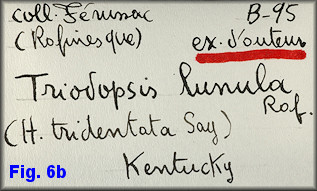 coll. Férussac B-95
(Rafinesque) ex. d'auteur
Triodopsis lunula
Raf.
(H. tridentata Say)
Kentucky
Fig. 6b